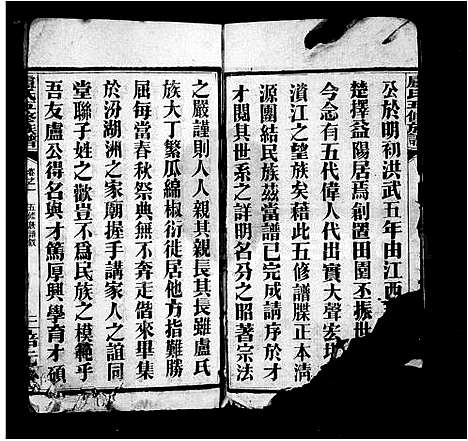 盧氏五修族譜
公於明初洪武五年由江西
楚擇益陽居焉創置田園丕振世
今念有五代偉人代出實大聲宏
濱江之望族矣藉此五修譜牒正本清
源團結民族茲當譜已完成請序於才
才閱其世系之詳明名分之昭著宗法
之嚴謹則人人親其親長其長雖盧氏
族大丁繁瓜綿椒衍徙居他方指難勝
屈每當春秋祭典無不奔走偕來畢集
於汾湖洲之家廟握手講家人之誼同
堂聯子姓之歡豈不為民族之模範乎
吾友盧公得名與才篤厚興學育才碩
盧氏五修族譜
卷之一
五修族譜敘